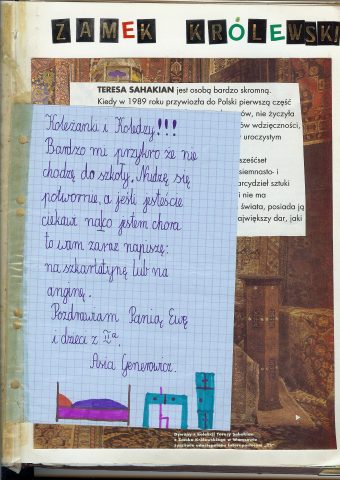 ZAMEK KRÓLEWSKI
TERESA SAHAKIAN jest osobą bardzo skromną.
Kiedy w 1989 roku przywiozła do Polski pierwszą część
ów, nie życzyła
ów wdzięczności,
uroczystym
sześćset
siemnasto- i
arcydzieł sztuki
i nie ma
świata, posiada ją
ajwiększy dar, jaki
Koleżanki i Koledzy!!!
Bardzo mi przykro że nie
chodzę do szkoły. Nudzę się
potwornie, a jeśli jesteście
ciekawi na co jestem chora
to wam zaraz napiszę:
na szkarlatynę lub na
anginę.
Pozdrawiam Panią Ewę
i dzieci z IIa.
Asia Generowicz.
Dywany z kolekcji Teresy Sahakian
w Zamku Królewskim w Warszawie